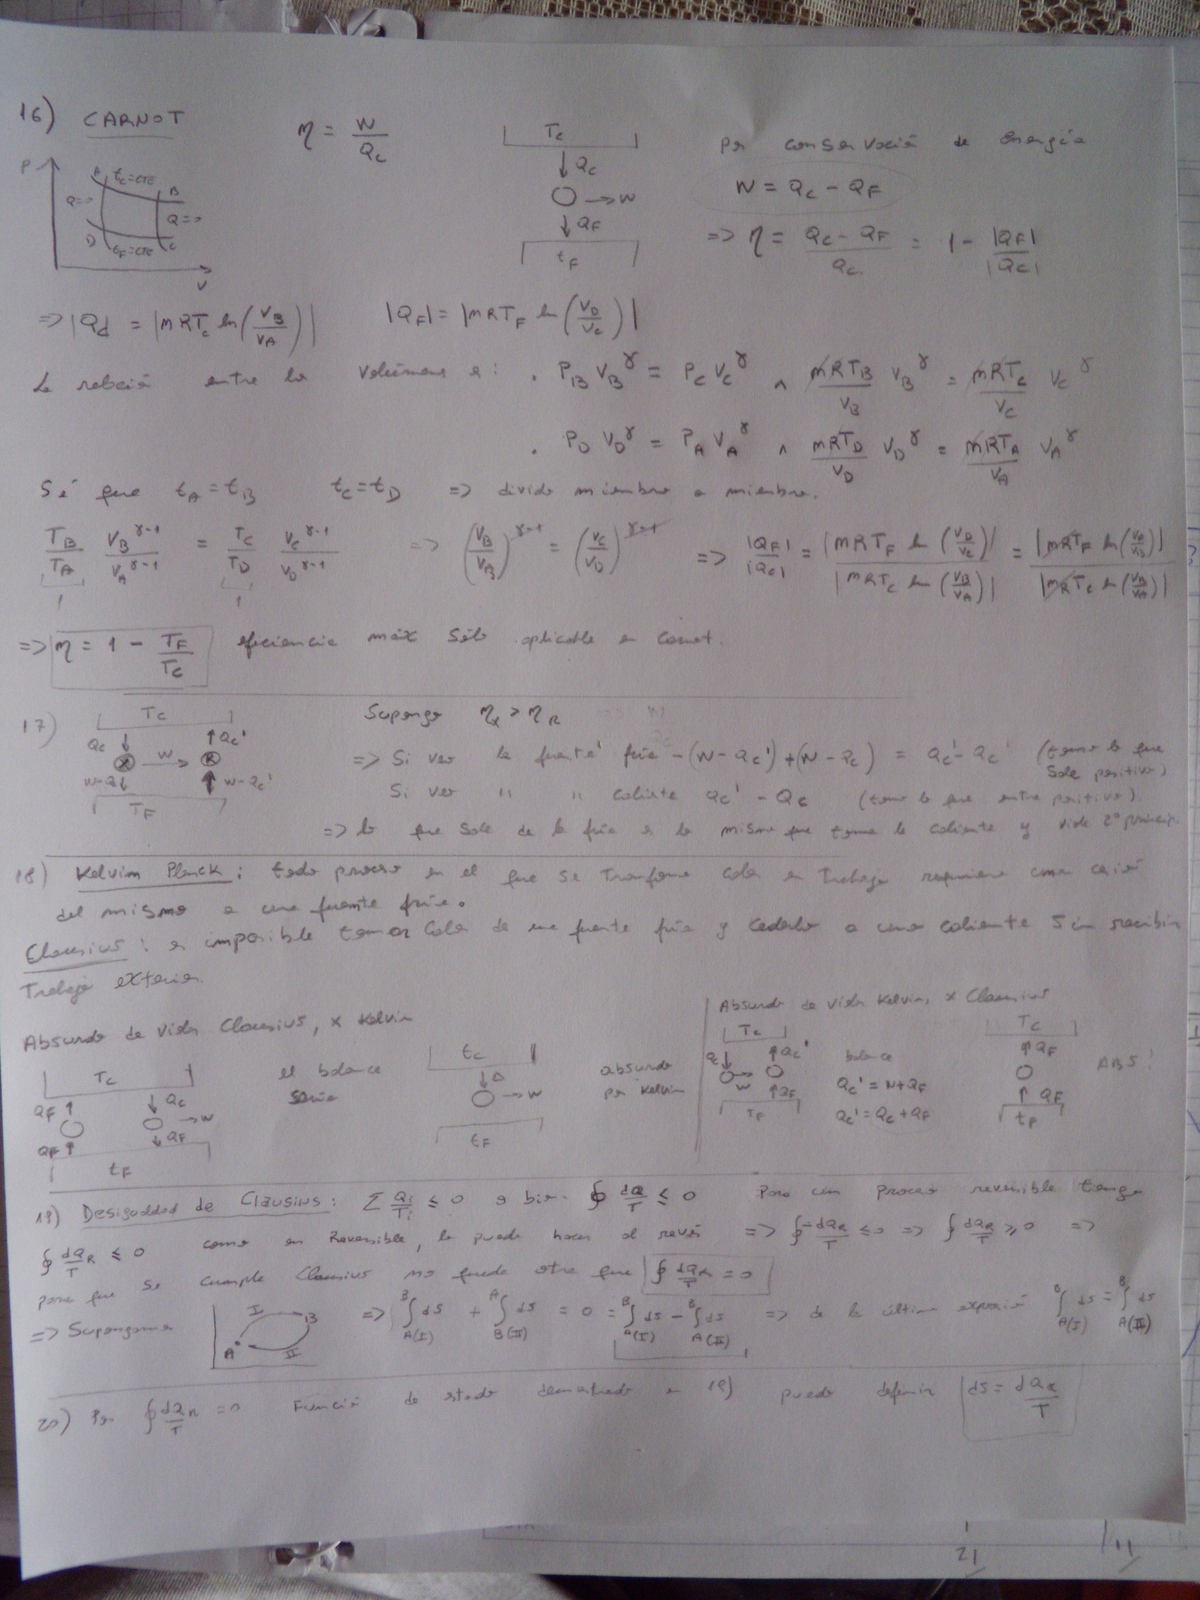 16) CARNOT
η = W/Qc
Tc
Qc
→W
QF
tF
Por conservació de energía
W = Qc - QF
=> η = (Qc - QF)/Qc = 1 - |QF|/|Qc|
P
A tc=cte
B
Q=0
Q=0
D tF=cte C
V
=> |Qc| = |mRTc ln(VB/VA)| |QF| = |mRTF ln(VD/Vc)|
La relació entre lo volúmenes es: . PB VB^γ = PC VC^γ ∧ mRTB/VB VB^γ = mRTC/VC VC^γ
. PD VD^γ = PA VA^γ ∧ mRTD/VD VD^γ = mRTA/VA VA^γ
Sé que tA = tB tC = tD => divido miembro a miembro.
TB/TA VB^γ-1/VA^γ-1 = TC/TD VC^γ-1/VD^γ-1 => (VB/VA)^γ-1 = (VC/VD)^γ-1 => |QF|/|Qc| = |mRTF ln(VD/Vc)|/|mRTc ln(VB/VA)| = |mRTF ln(VB/VA)|/|mRTc ln(VB/VA)|
1 1
=> η = 1 - TF/Tc eficiencia máx sólo aplicable en Carnot.
17) Tc
Qc ↓ ↑Qc'
X W→ R
W-Qc↓ ↑W-Qc'
TF
Supongo ηx > ηR
=> Si veo la fuente fría -(W-Qc')+(W-Qc) = Qc'-Qc' (tomo lo que sale positivo)
Si veo " " caliente Qc' - Qc (tomo lo que entra positivo).
=> lo que sale de la fría es lo mismo que toma la caliente y viola 2° princip.
18) Kelvin Planck: todo proceso en el que se transforme calor en trabajo requiere una cesió
del mismo a una fuente fría.
Clausius: es imposible tomar calor de una fuente fría y cederlo a una caliente sin recibir
Trabajo exterior.
Absurdo de viola Clausius, x Kelvin
Tc
QF↑ ↓Qc
→W
QF↑ ↓QF
tF
el balance
seria
tc
↓Δ
→W
tF
absurdo
por Kelvin
Absurdo de viola Kelvin, x Clausius
Tc
Qc↓ ↑Qc'
W
↑QF
TF
balance
Qc' = W+QF
Qc' = Qc+QF
Tc
↑QF
↑QF
tF
ABS!
19) Desigualdad de Clausius: Σ Qi/Ti ≤ 0 o bien ∮ dQ/T ≤ 0 Para un proceso reversible tengo
∮ dQR/T ≤ 0 como en Reversible, lo puedo hacer al revés => ∮ -dQR/T ≤ 0 => ∮ dQR/T ≥ 0 =>
para que se cumple Clausius no queda otra que ∮ dQR/T = 0
=> Supongamos
I
A B
II
=> ∫A(I)^B ds + ∫B(II)^A ds = 0 = ∫A(I)^B ds - ∫A(II)^B ds => de la última expresió ∫A(I)^B ds = ∫A(II)^B ds
20) Por ∮ dQR/T = 0 Funció de estado demostrado en 19) puedo definir ds = dQR/T
21
11